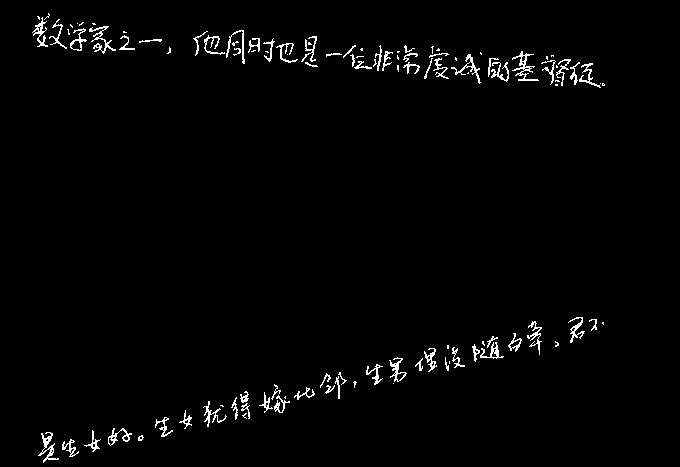 数学家之一，他同时也是一位非常虔诚的基督徒。
是生女好。生女犹得嫁比邻，生男埋没随百草。君不